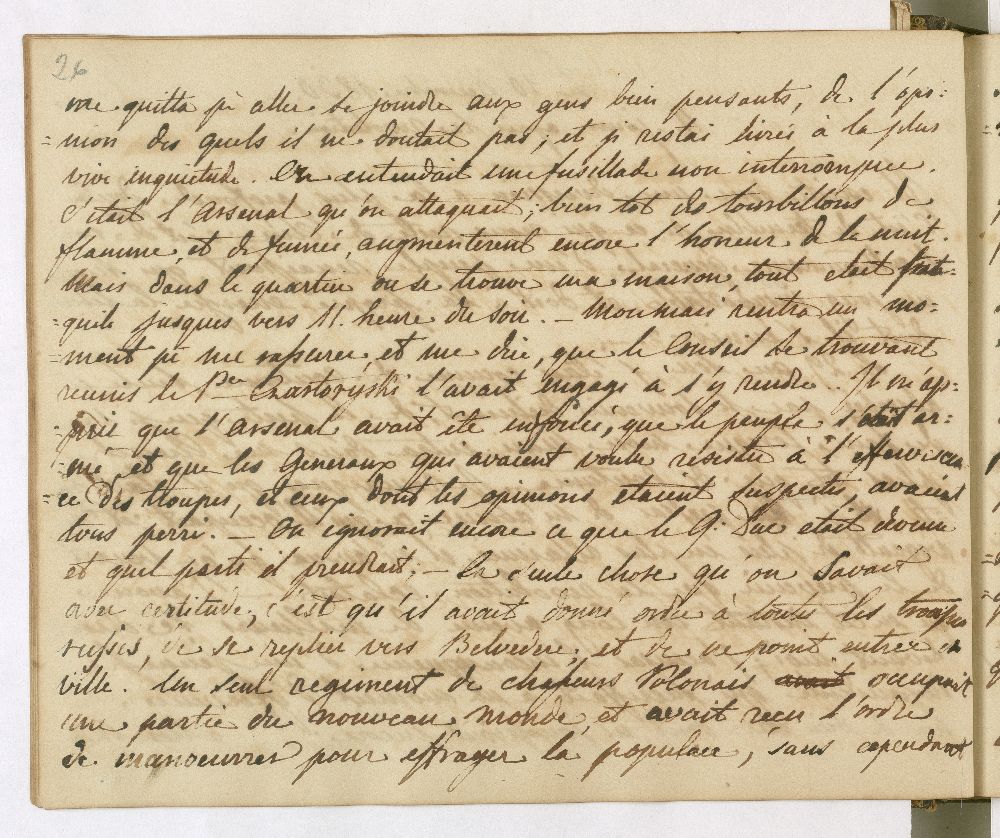 26
me quitta pr aller se joindre aux gens bien pensants, de l'opi=
=nion des quels il ne doutait pas, et je restai livrée à la plus
vive inquietude. On entendait une fusillade non interrompue.
C'était l'Arsenal qu'on attaquait; bien tot des tourbillons de
flamme, et de fumée, augmenterent encore l'horreur de la nuit.
Mais dans le quartier ou se trouve ma maison, tout etait tran=
=quile jusques vers 11. heure du soir. – Mon mari rentra un mo=
=ment pr me rassurer, et me dire, que le Conseil se trouvant
reunis le Pce Czartoryski l'avait engagé à s'y rendre. Il m'ap=
=prit que l'Arsenal avait été enfoncé, que le peuple s'était ar=
=mé, et que les Generaux qui avaient voulu resister à l'effervescen=
=ce des troupes, et ceux dont les opinions etaient suspectes, avaient
tous perri. – On ignorait encore ce que le G: Duc etait devenu
et quel parti il prendrait; – la seule chose qu'on savait
avec certitude, c'est qu'il avait donné ordre à toutes les troupes
russes, de se replier vers Belvedere, et de ne point entrer en
ville. Un seul regiment de chasseurs Polonais avait occupait
une partie du nouveau monde et avait recu l'ordre
de manoeuvrer pour effrayer la populace, sans cependant